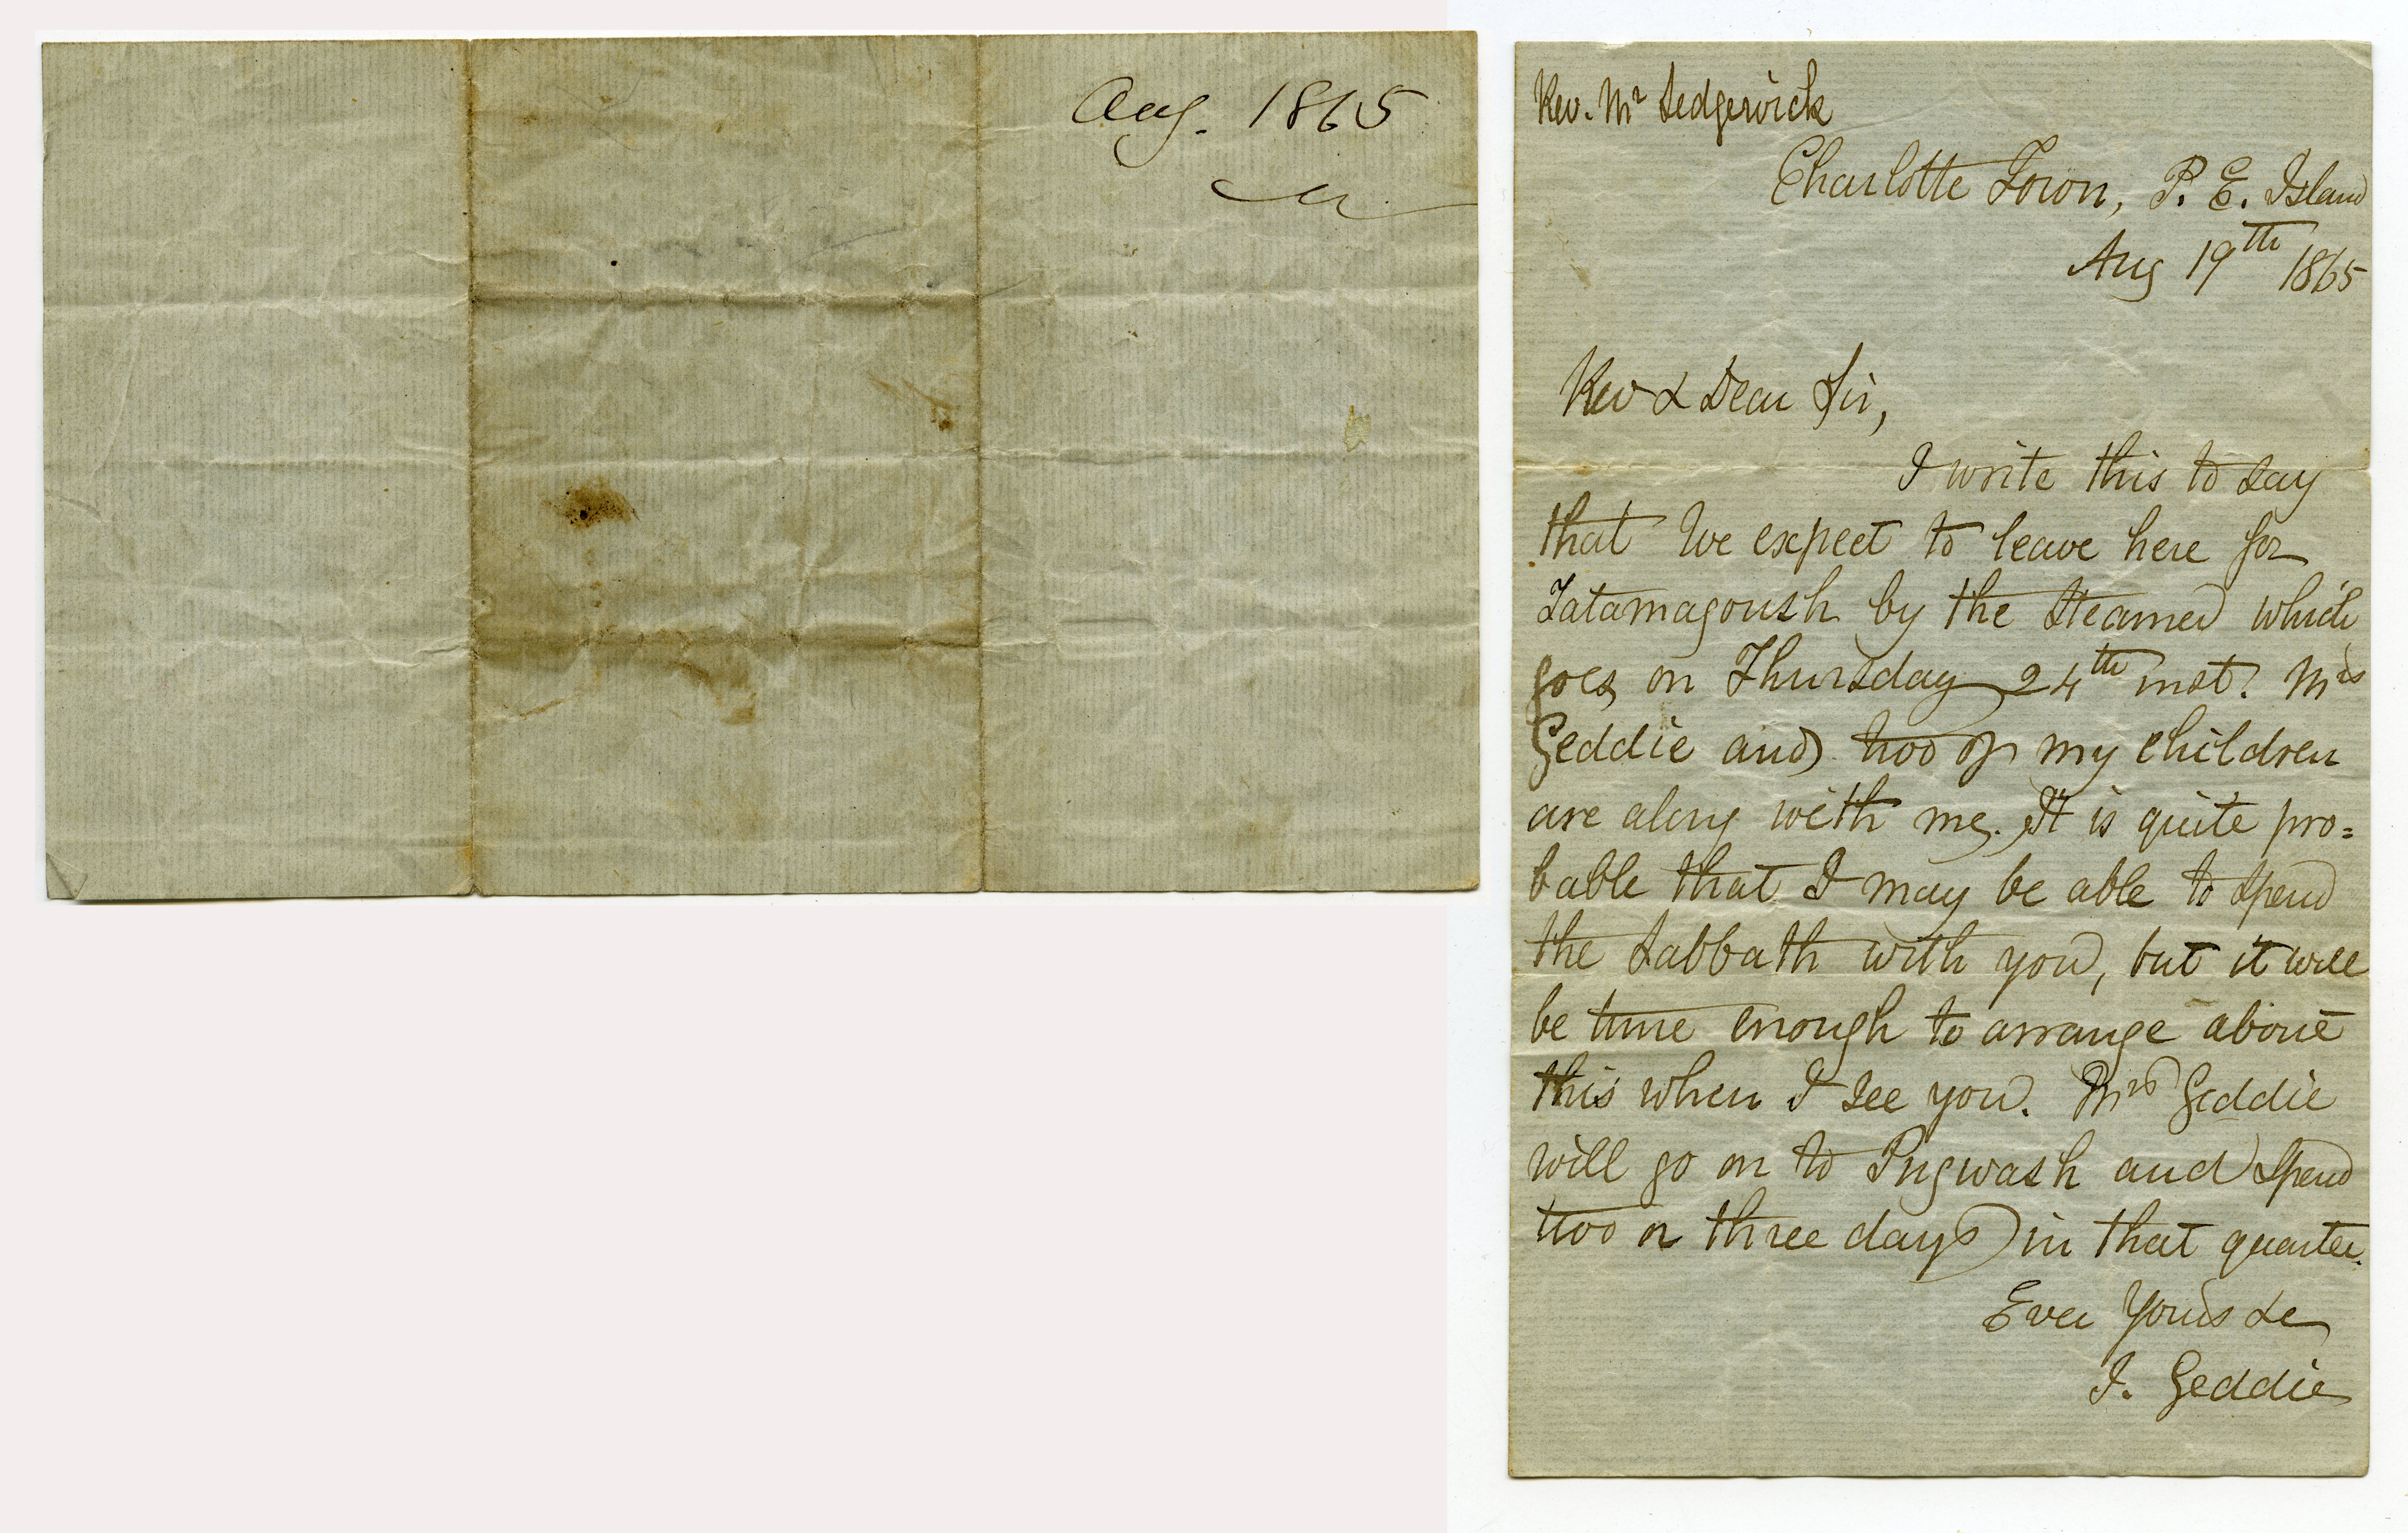 Aug. 1865
Rev. Mr Sedgewick
Charlotte Town, P. E. Island
Aug 19th 1865
Rev & Dear Sir,
I write this to say
that we expect to leave here for
Tatamagoush by the Steamer which
goes on Thursday 24th inst. Mrs
Geddie and two of my children
are along with me. It is quite pro=
bable that I may be able to spend
the Sabbath with you, but it will
be time enough to arrange about
this when I see you. Mrs Geddie
will go on to Pugwash and spend
two or three days in that quarter.
Ever Yours &c
J. Geddie